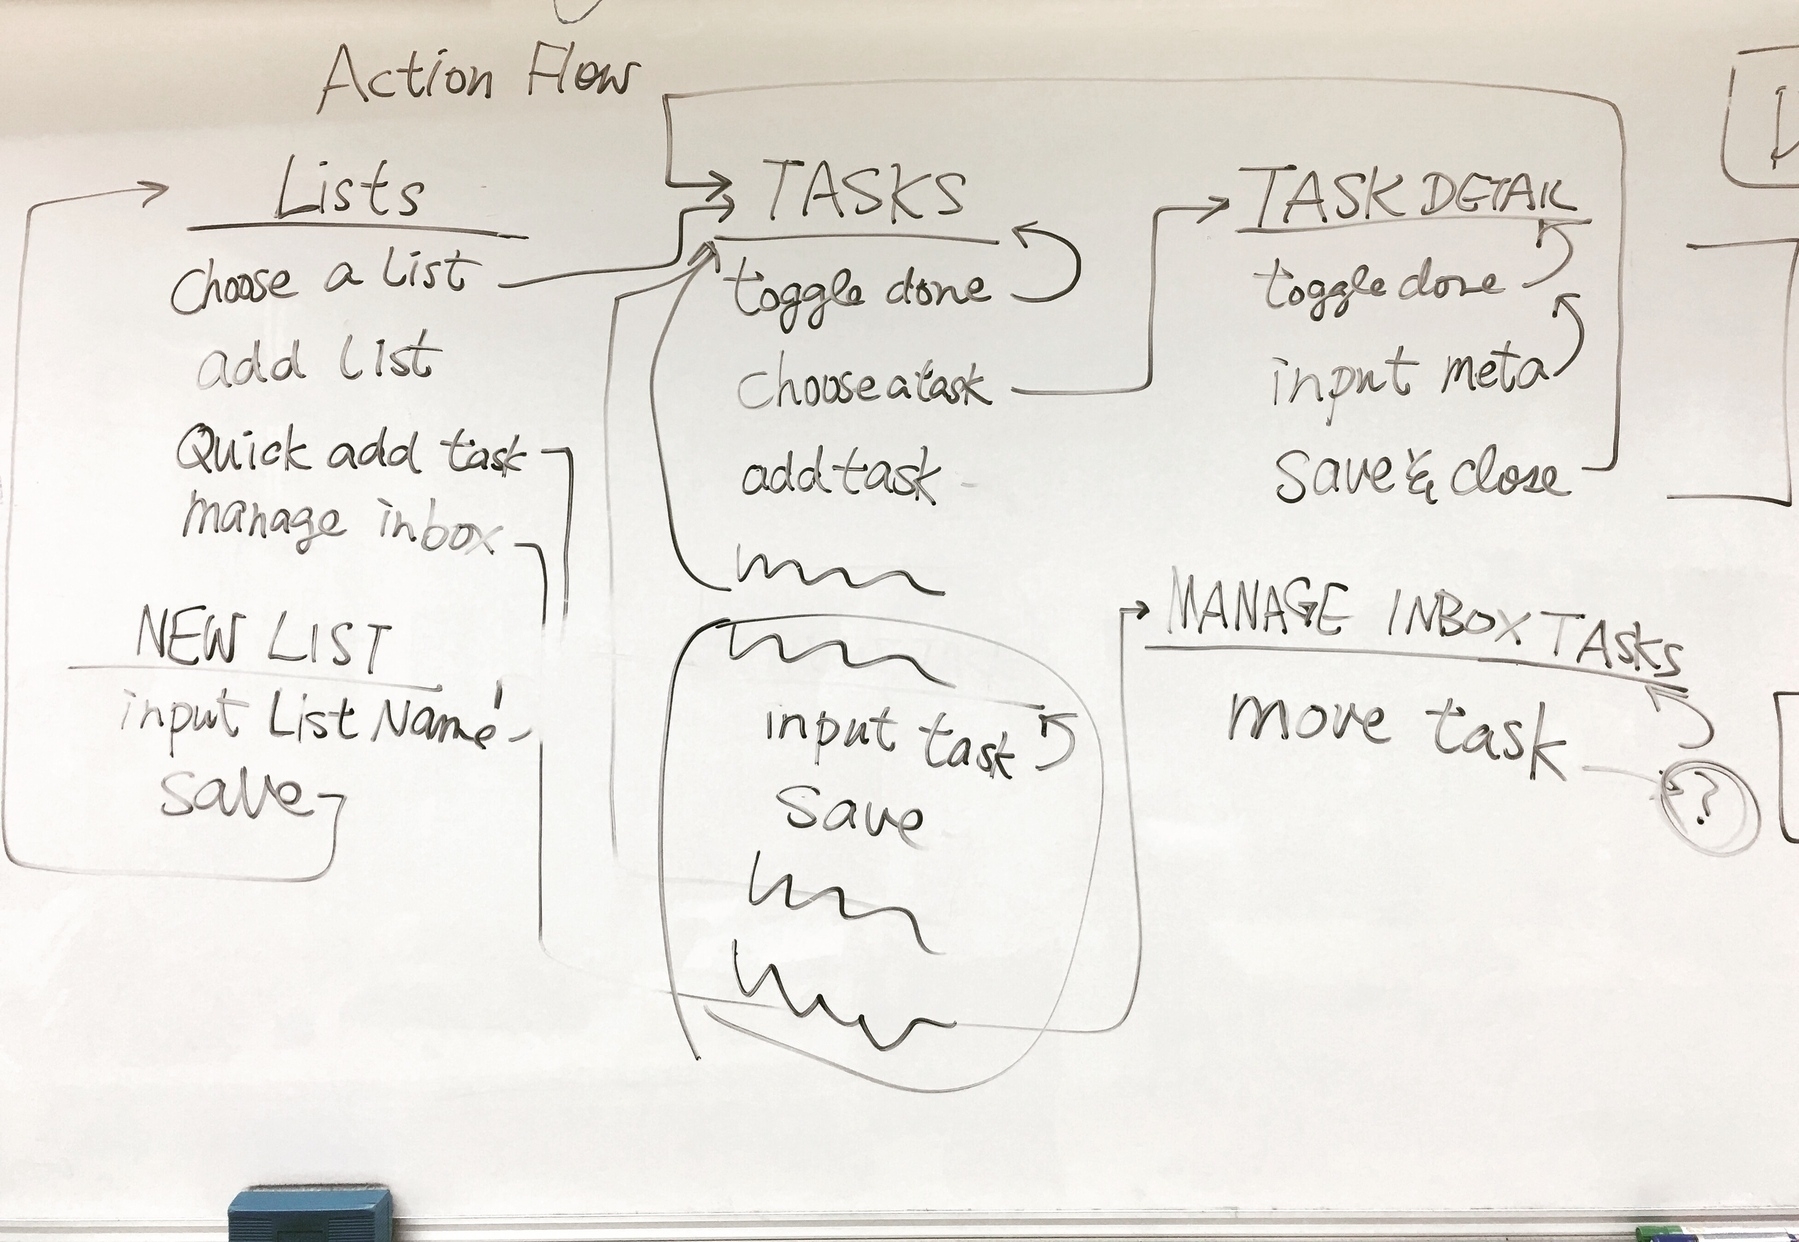 Action Flow
Lists
choose a list
add list
Quick add task
manage inbox
NEW LIST
input List Name
save
TASKS
toggle done
choose a task
add task
input task
save
TASK DETAIL
toggle done
input meta
save & close
MANAGE INBOX TASKS
move task
?